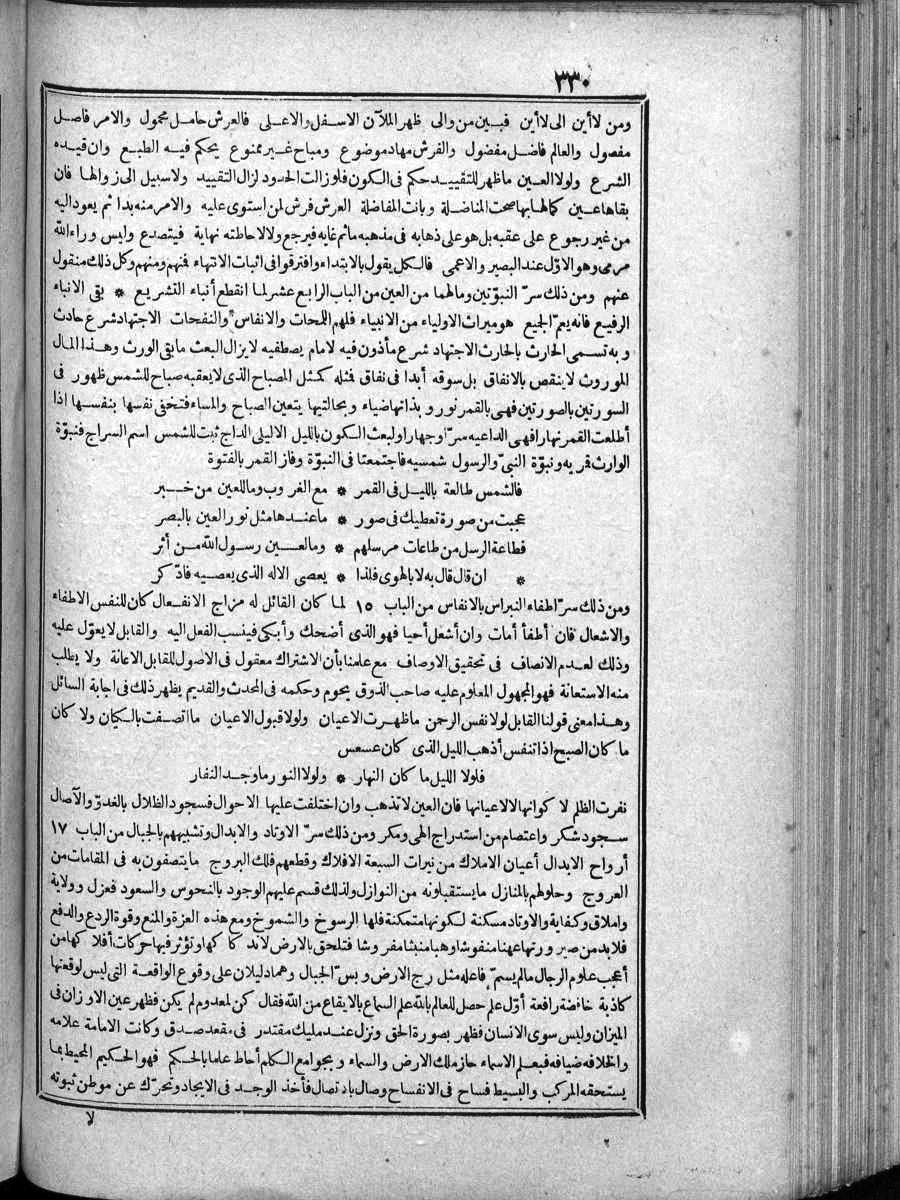 ٣٣٠
ومن لا أين الى لا أين فبين من والى ظهر الملآن الاسفل والاعلى فالعرش حامل محمول والامر فاصل
مفصول والعالم فاضل مفضول والفرش مهاد موضوع ومباح غير ممنوع يحكم فيه الطبع وان قيده
الشرع ولولا العين ما ظهر للتقييد حكم فى الكون فلو زالت الحدود لزال التقييد ولا سبيل الى زوالها فان
بقاها عين كمالها بها صحت المناضلة وبانت المفاضلة العرش فرش لمن استوى عليه والامر منه بدا ثم يعود اليه
من غير رجوع على عقبه بل هو على ذهابه فى مذهبه ما ثم غايه فيرجع ولا لاحاطته نهاية فيتصدع وليس وراء الله
مرمى وهو الاوّل عند البصير والاعمى فالكل يقول بالابتداء وافترقوا فى اثبات الانتهاء فمنهم ومنهم وكل ذلك منقول
عنهم ومن ذلك سرّ النبوّتين وما لهما من العين من الباب الرابع عشر لما انقطع أنباء التشريع * بقى الانباء
الرفيع فانه يعمّ الجميع هو ميراث الاولياء من الانبياء فلهم اللمحات والانفاس والنفحات الاجتهاد شرع حادث
وبه تسمى الحارث بالحارث الاجتهاد شرع مأذون فيه لامام يصطفيه لا يزال البعث ما بقى الورث وهذا المال
الموروث لا ينقص بالانفاق بل سوقه أبدا فى نفاق فمثله كمثل المصباح الذى لا يعقبه صباح للشمس ظهور فى
السورتين بالصورتين فهى بالقمر نور وبذاتها ضياء وبحالتيها يتعين الصباح والمساء فتخفى نفسها بنفسها اذا
أطلعت القمر نهارا فهى الداعيه سرّا وجهارا ولبعث الكون بالليل الاليلى الداج ثبت للشمس اسم السراج فنبوّة
الوارث قمريه ونبوّة النبىّ والرسول شمسيه فاجتمعتا فى النبوّة وفاز القمر بالفتوة
فالشمس طالعة بالليل فى القمر * مع الغروب وما للعين من خبر
عجبت من صورة تعطيك فى صور * ما عندها مثل نور العين بالبصر
فطاعة الرسل من طاعات مرسلهم * وما لعين رسول الله من أثر
* ان قال قال به لا بالهوى فلذا * يعصى الاله الذى يعصيه فادّكر
ومن ذلك سرّ اطفاء النبراس بالانفاس من الباب ١٥ لما كان القائل له مزاج الانفعال كان للنفس الاطفاء
والاشعال فان أطفأ أمات وان أشعل أحيا فهو الذى أضحك وأبكى فينسب الفعل اليه والقابل لا يعوّل عليه
وذلك لعدم الانصاف فى تحقيق الاوصاف مع علمنا بأن الاشتراك معقول فى الاصول للقابل الاعانة ولا يطلب
منه الاستعانة فهو المجهول المعلوم عليه صاحب الذوق يحوم وحكمه فى المحدث والقديم يظهر ذلك فى اجابة السائل
وهذا معنى قولنا القابل لولا نفس الرحمن ما ظهرت الاعيان ولولا قبول الاعيان ما اتصفت بالكيان ولا كان
ما كان الصبح اذا تنفس أذهب الليل الذى كان عسعس
فلولا الليل ما كان النهار * ولولا النور ما وجد النفار
نفرت الظلم لا كوانها لا لاعيانها فان العين لا تذهب وان اختلفت عليها الاحوال فسجود الظلال بالغدوّ والآصال
سجود شكر واعتصام من استدراج الهى ومكر ومن ذلك سرّ الاوتاد والابدال وتشبيههم بالجبال من الباب ١٧
أرواح الابدال أعيان الاملاك من نيرات السبعة الافلاك وقطعهم فلك البروج ما يتصفون به فى المقامات من
العروج وحلولهم بالمنازل ما يستقبلونه من النوازل ولذلك قسم عليهم الوجود بالنحوس والسعود فعزل وولاية
واملاق وكفاية والاوتاد مسكنة لكونها متمكنة فلها الرسوخ والشموخ ومع هذه العزة والمنع وقوة الردع والدفع
فلا بد من صيرورتها عهنا منفوشا وهباء منبثا مفروشا فتلحق بالارض لاندكاكها وتؤثر فيها حركات أفلاكها من
أعجب علوم الرجال ما لم يسمّ فاعله مثل رج الارض وبسّ الجبال وهما دليلان على وقوع الواقعة التى ليس لوقعتها
كاذبة خافضة رافعة أوّل علم حصل للعالم بالله علم السماع بالايقاع من الله فقال كن لمعدوم لم يكن فظهر عين الاوزان فى
الميزان وليس سوى الانسان فظهر بصورة الحق ونزل عند مليك مقتدر فى مقعد صدق وكانت الامامة علامه
والخلافه ضيافه فبعلم الاسماء حاز ملك الارض والسماء وبجوامع الكلم أحاط علما بالحكم فهو الحكيم المحيط بما
يستحقه المركب والبسيط فساح فى الانفساح وصال باد تصال فأخذ الوجد فى الايجاد وتحرّك عن موطن ثبوته
لا